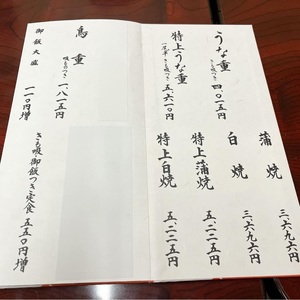 うな重
きも吸つき
四、〇一五円
特上うな重
一尾半 きも吸つき
五、六一〇円
蒲焼
三、六九六円
白焼
三、六九六円
特上蒲焼
五、二二五円
特上白焼
五、二二五円
鳥重
吸ものつき
一、八一五円
御飯大盛
一一〇円増
きも吸御飯つき定食 五五〇円増